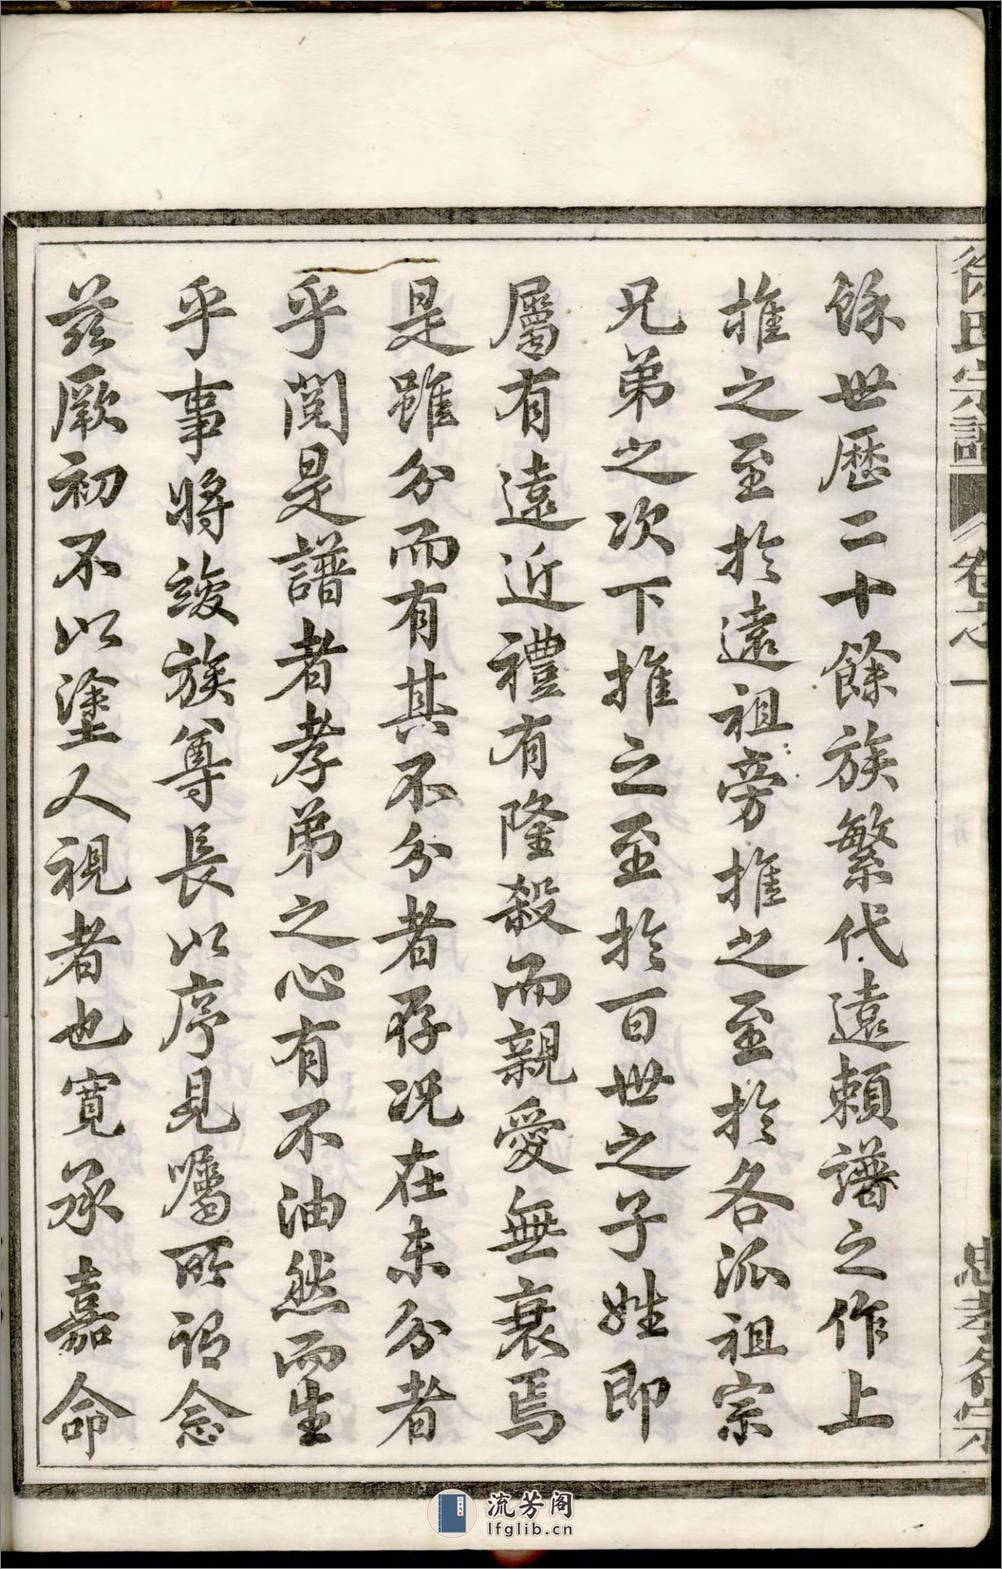 徐氏宗譜
卷之一
餘世歷二十餘族繁代遠賴譜之作上
推之至於遠祖旁推之至於各派祖宗
兄弟之次下推之至於百世之子姓即
屬有遠近禮有隆殺而親愛無衰焉
是雖分而有其不分者存况在未分者
乎閱是譜者孝弟之心有不油然而生
乎事將竣族尊長以序見囑所謂念
茲厥初不以塗人視者也寬承嘉命
流芳阁
lfglib.cn